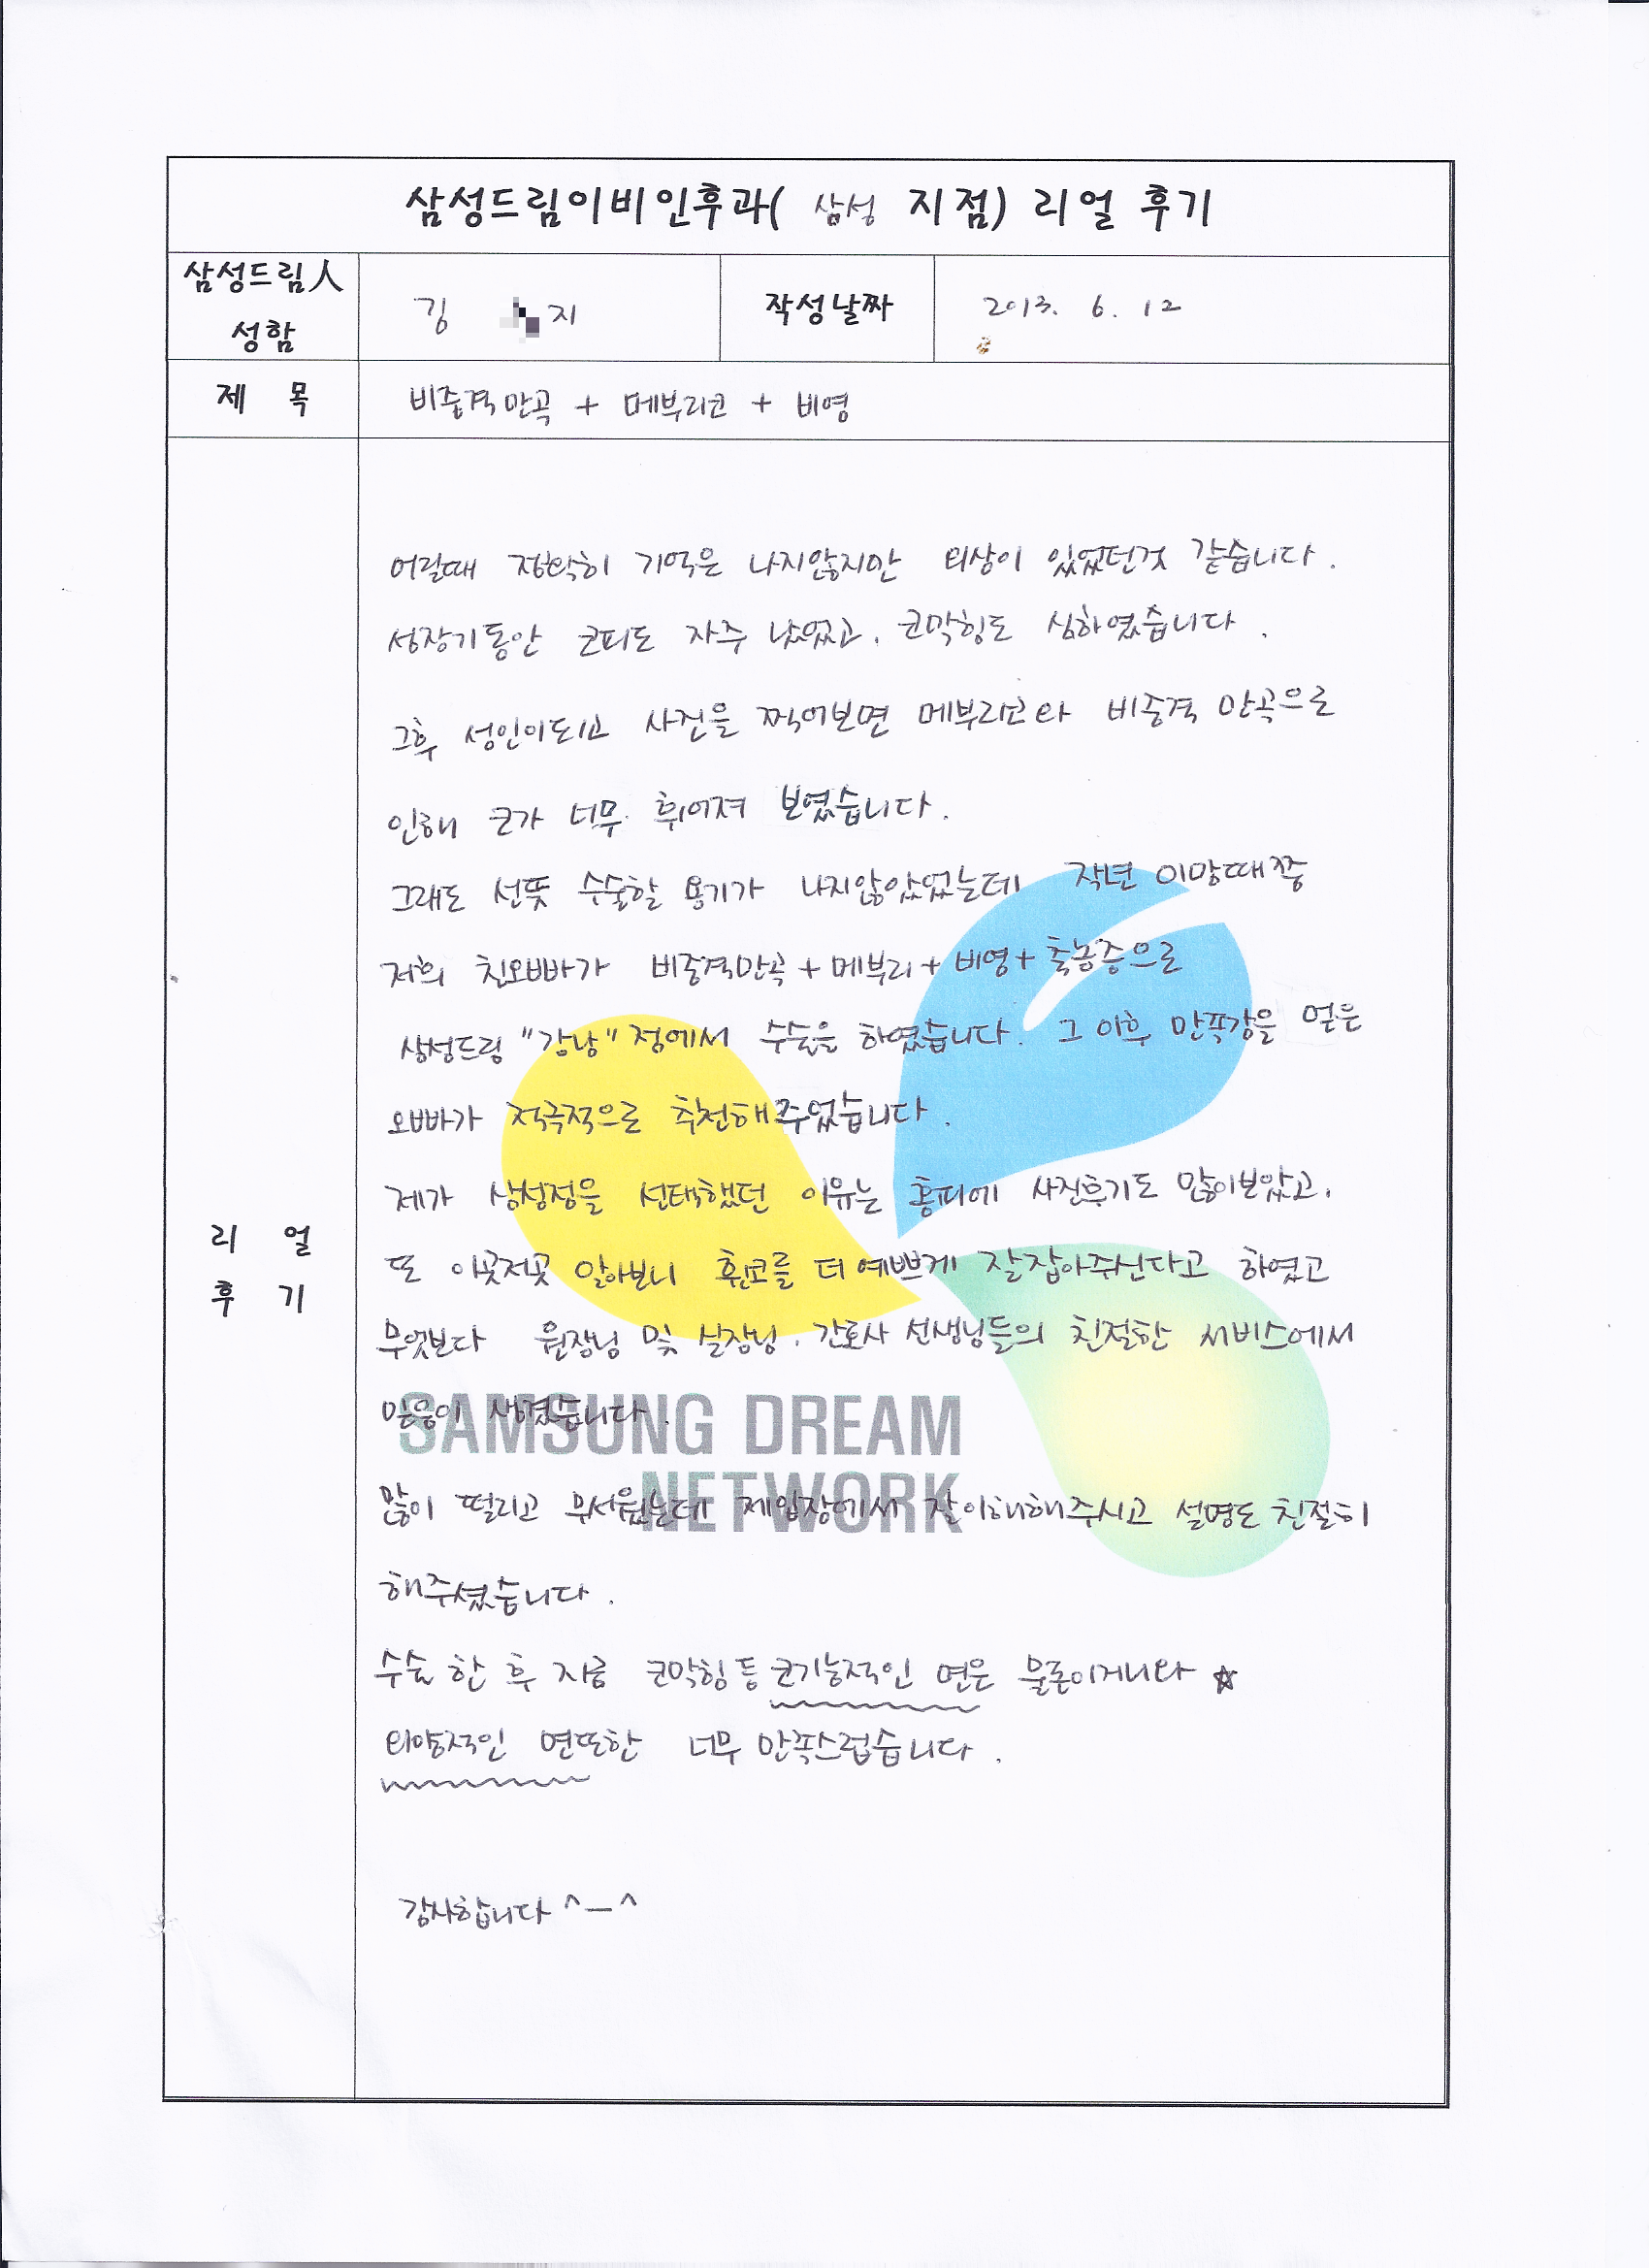 삼성드림이비인후과( 삼성 지점) 리얼 후기
삼성드림人 성함
김 지
작성날짜
2013. 6. 12
제 목
비중격만곡 + 메부리코 + 비염
리 얼 후 기
어릴때 정확히 기억은 나지않지만 외상이 있었던것 같습니다.
성장기동안 코피도 자주 났었고, 코막힘도 심하였습니다.
그후 성인이되고 사진을 찍어보면 메부리코와 비중격 만곡으로
인해 코가 너무 휘어져 보였습니다.
그래도 선뜻 수술할 용기가 나지않았었는데 작년 이맘때쯤
저희 친오빠가 비중격만곡+메부리+비염+축농증으로
삼성드림 "강남"점에서 수술을 하였습니다. 그 이후 만족감을 얻은
오빠가 적극적으로 추천해주었습니다.
제가 삼성점을 선택했던 이유는 홈피에 사진후기도 많이보았고,
또 이곳저곳 알아보니 휜코를 더 예쁘게 잘잡아주신다고 하였고
무엇보다 원장님 및 실장님, 간호사 선생님들의 친절한 서비스에서
믿음이 생겼습니다.
많이 떨리고 무서웠는데 제입장에서 잘이해해주시고 설명도 친절히
해주셨습니다.
수술 한 후 지금 코막힘등 코기능적인 면은 물론이거니와 ☆
외양적인 면또한 너무 만족스럽습니다.
감사합니다 ^ㅡ^
SAMSUNG DREAM
NETWORK